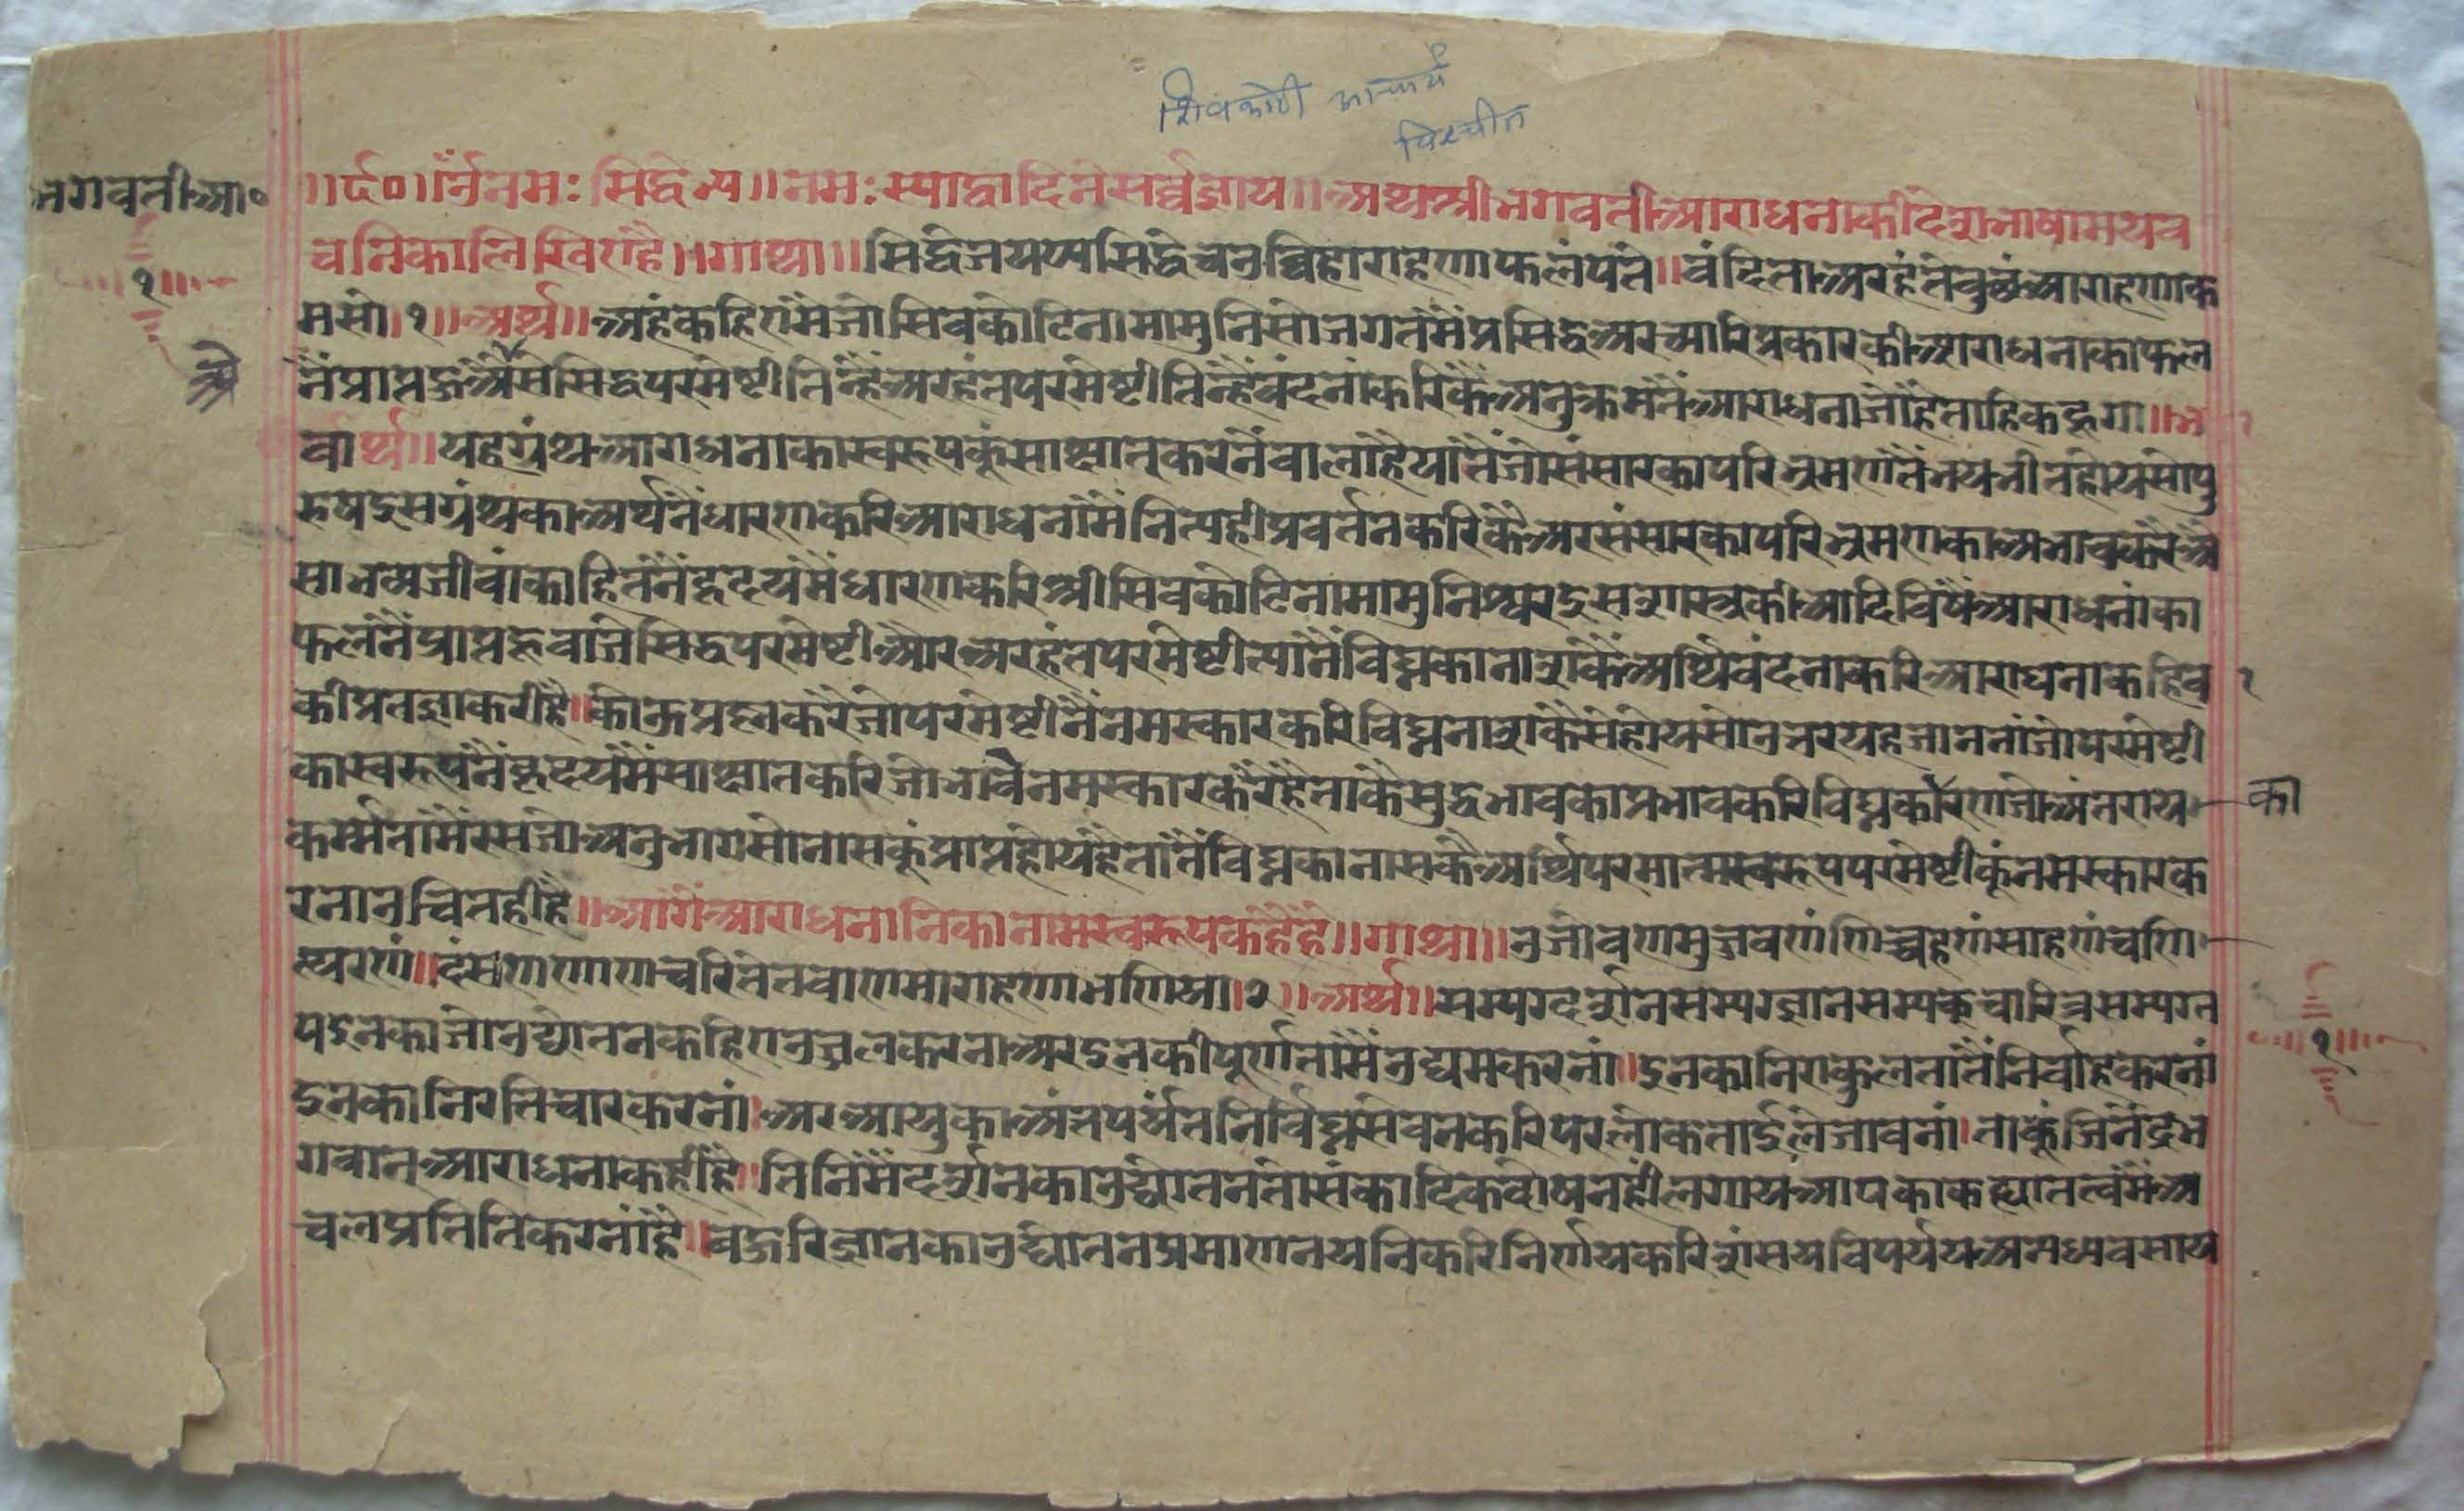 शिवकोटी आचार्य
विरचीत
भगवती आ०
॥ र्द०॥ ॐ नमः सिद्धेभ्य॥ नमः स्याद्वादिने सर्व्वज्ञाय॥ अथ श्री भगवती आराधना की देशभाषामय व
चनिका लिखिए है॥ गाथा॥ सिद्धे जयप्पसिद्धे चउव्विहाराहणाफलं पत्ते॥ वंदित्ता अरहंते वुच्छं आराहणा क
मसो।१॥ अर्थ॥ अहं कहिए मैं जो सिवकोटिनामा मुनि सो जगत मैं प्रसिद्ध अर च्यारि प्रकार की आराधना का फल
नैं प्राप्त हूऐ ऐसे सिद्ध परमेष्टी तिन्है अरहंत परमेष्टी तिन्है वंदनां करिकै अनुक्रम नैं आराधना जो है ताहि कहूगा॥ भा
वार्थ॥ यह ग्रंथ आराधना का स्वरूप कूं साक्षात् करनैं वाला है यातैं जो संसार का परिभ्रमण तैं भयभीत होय सो पु
रुष इस ग्रंथ का अर्थ नैं धारण करि आराधनां मैं नित्य ही प्रवर्तन करिकै अर संसार का परिभ्रमण का अभाव करै अै
सा भव्य जीवां का हित नैं हृदय मैं धारण करि श्री सिवकोटिनामा मुनिश्वर इस शास्त्र की आदि विषैं आराधनां का
फल नैं प्राप्त हूवा जे सिद्ध परमेष्टी और अरहंत परमेष्टी त्यां नैं विघ्न का नाश कै अर्थि वंदना करि आराधना कहिव १
की प्रतज्ञा करी है॥ कोऊ प्रश्न करै जो परमेष्टी नैं नमस्कार करि विघ्न नाश कैसे होय सो उत्तर यह जाननां जो परमेष्टी
का स्वरूप नैं हृदय मैं साक्षात करि जो भाव नमस्कार करै है ताकै सुद्ध भाव को प्रभाव करि विघ्न कारण जो अंतराय का
कर्म्म ता मैं रस जो अनुभाग सो नास कूं प्राप्त होय है तातैं विघ्न का नास कै अर्थि परमात्म स्वरूप परमेष्टी कूं नमस्कार क
रना उचित ही है॥ आगैं आराधनानि का नाम स्वरूप कहै है॥ गाथा॥ उज्जोवणमुज्जवणं णिच्चहणं साहणं च णि
त्थरणं॥ दंसणणाणचरित्तं तवाणमाराहणा भणिया।२॥ अर्थ॥ सम्यग्दर्शन सम्यग्ज्ञान सम्यक् चारित्र सम्यग्त
प इनका जो उद्योतन कहिए उज्जल करना अर इनकी पूर्णता मैं उद्यम करनां॥ इनका निराकुलता तैं निर्वाह करनां
इनको निरतिचार करनां। अर आयु का अंत पर्यंत निर्विघ्न सेवन करि परलोक ताई ले जावनां। ताकूं जिनेंद्र भ
गवान् आराधना कही है॥ तिनि मैं दर्शन का उद्योतन तो संकादिक दोष नहीं लगाय आप का कह्या तत्व मैं अ
चल प्रतिति करनां है॥ बहुरि ज्ञान का उद्योतन प्रमाण नयनि करि निर्णय करि शंसय विपर्यय अनध्यवसाय
१
१